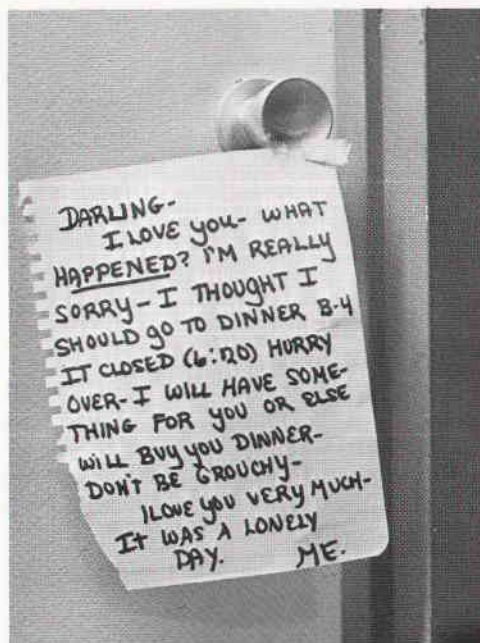 DARLING-
I LOVE YOU- WHAT
HAPPENED? I'M REALLY
SORRY- I THOUGHT I
SHOULD GO TO DINNER B-4
IT CLOSED (6:20) HURRY
OVER- I WILL HAVE SOME-
THING FOR YOU OR ELSE
WILL BUY YOU DINNER-
DON'T BE GROUCHY-
I LOVE YOU VERY MUCH-
IT WAS A LONELY
DAY. ME.